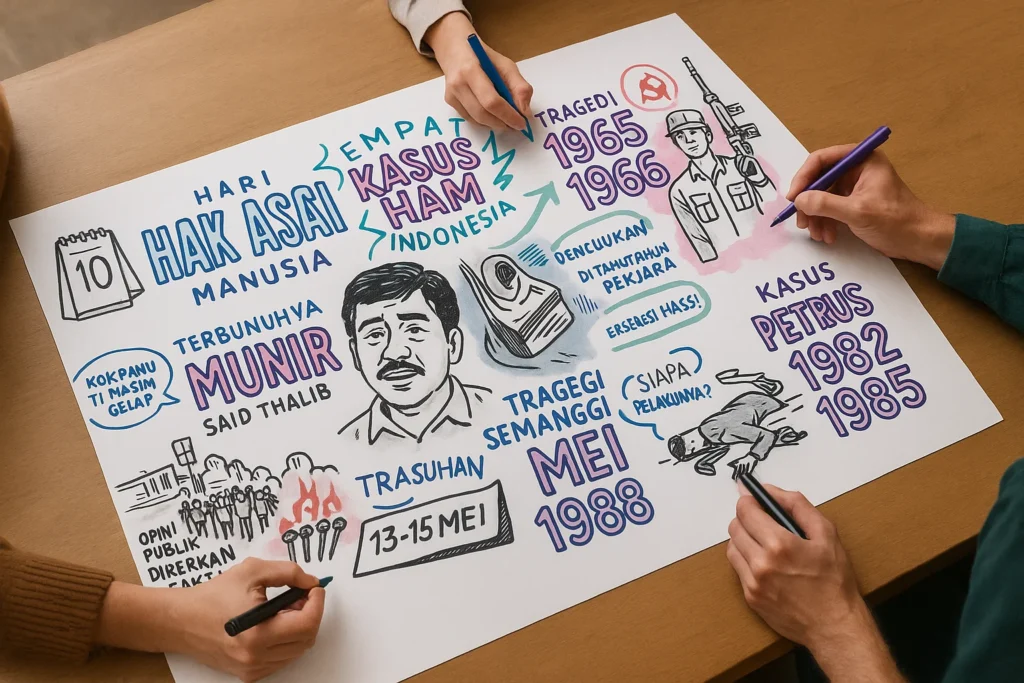 10
HARI
HAK ASAI
MANUSIA
EMPAT
KASUS
HAM
INDONESIA
TRAGEDI
1965
1966
DENCUUKAN
PEKJARA
ERSERESI HASS!
KASUS
PETRUS
1982
1985
TERBUNUHYA
MUNIR
SAID THALIB
KOKPANU
TI MASIM
GELAP
TRAGEGI
SEMANGGI
MEI
1988
SIAPA
PELAKUNYA?
TRASUHAN
13-15 MEI
OPINI
PUBLIK
DIRERKAN